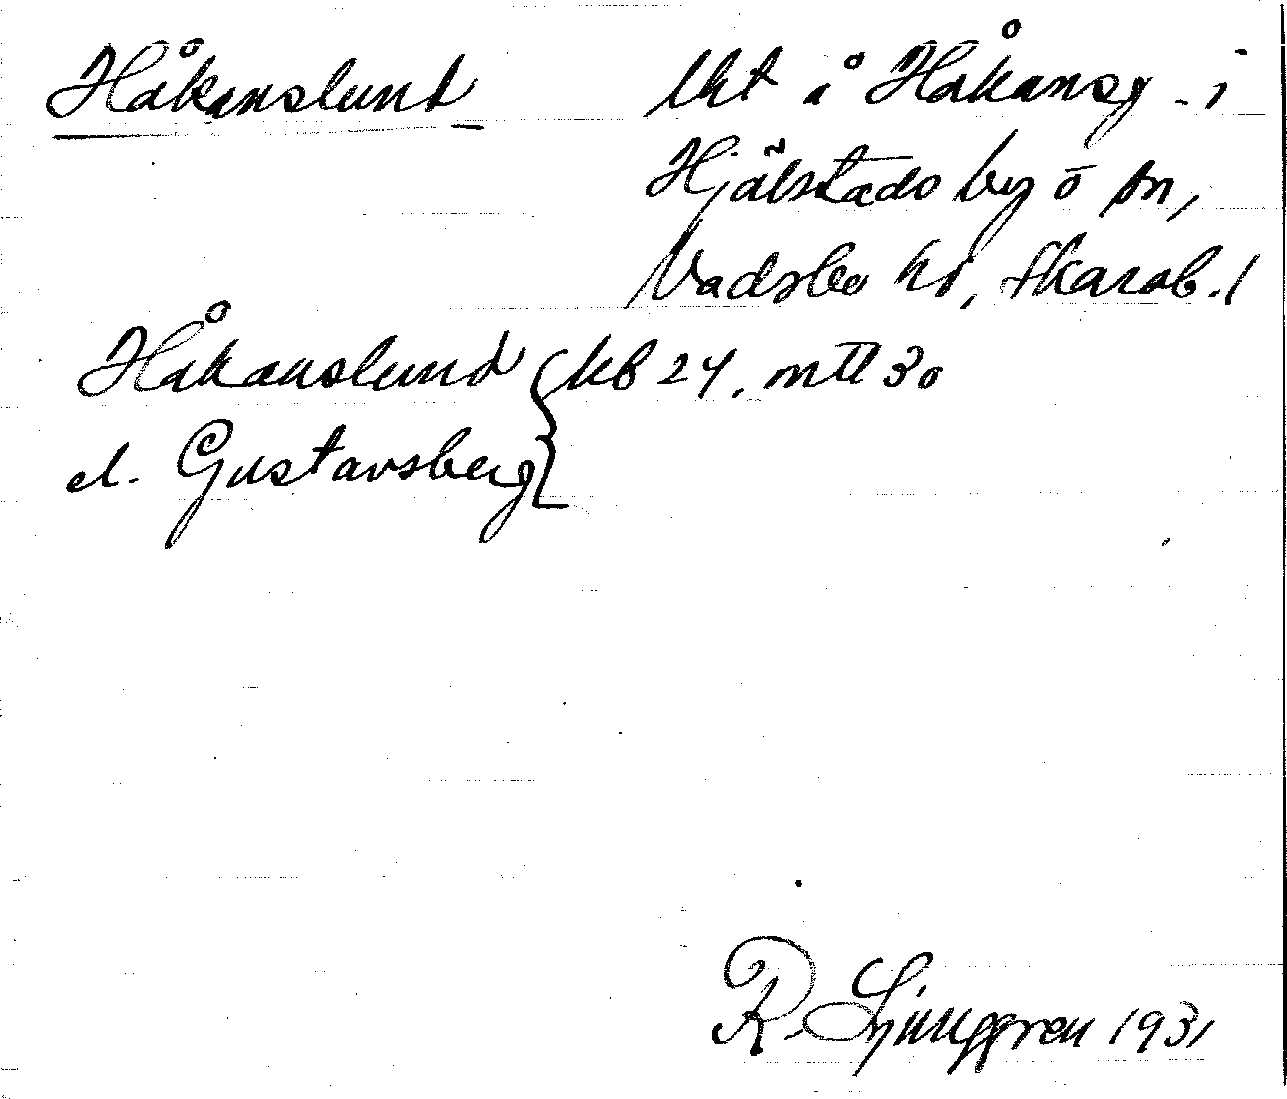 Håkanslund
lht å Håkansg. i
Hjälstads by o sn,
Vadsbo hd, Skarab. l
Håkanslund } kb 24, mtl 30
el. Gustavsberg
R. Ljunggren 1931